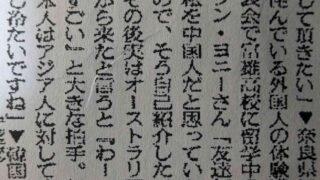 して頂きたい」▼奈良県
住んでいる外国人の体験
表会で富雄高校に留学中
ン・ヨニーさん「友達
私を中国人だと思ってい
ので、そう自己紹介した
その後実はオーストラリ
から来たと言うと『わー
すごい』と大きな拍手。
本人はアジア人に対して
し冷たいですね」▼韓国